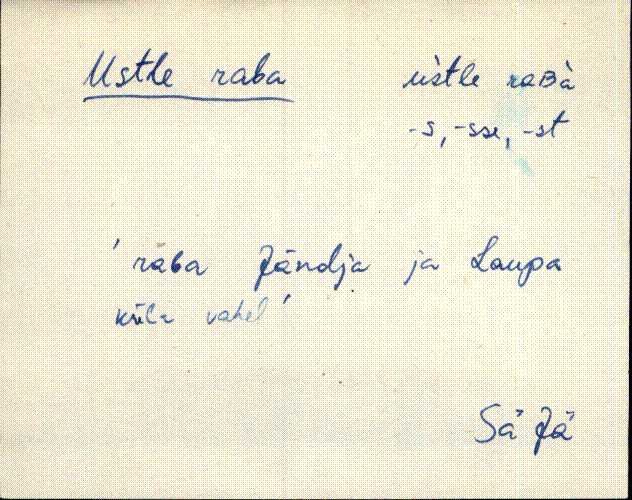 Ustle raba
ùstle raʙà
-s, -sse, -st
'raba Jändja ja Laupa
küla vahel'
Sä Jä